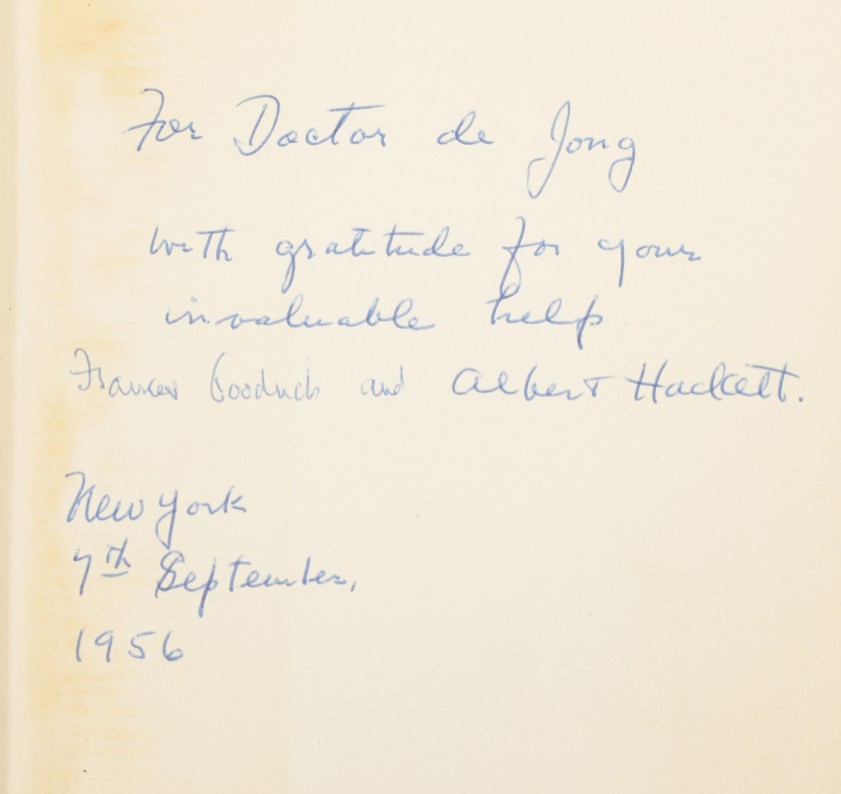 For Doctor de Jong
with gratitude for your
invaluable help
Frances Goodrich and Albert Hackett.
New York
7th September,
1956